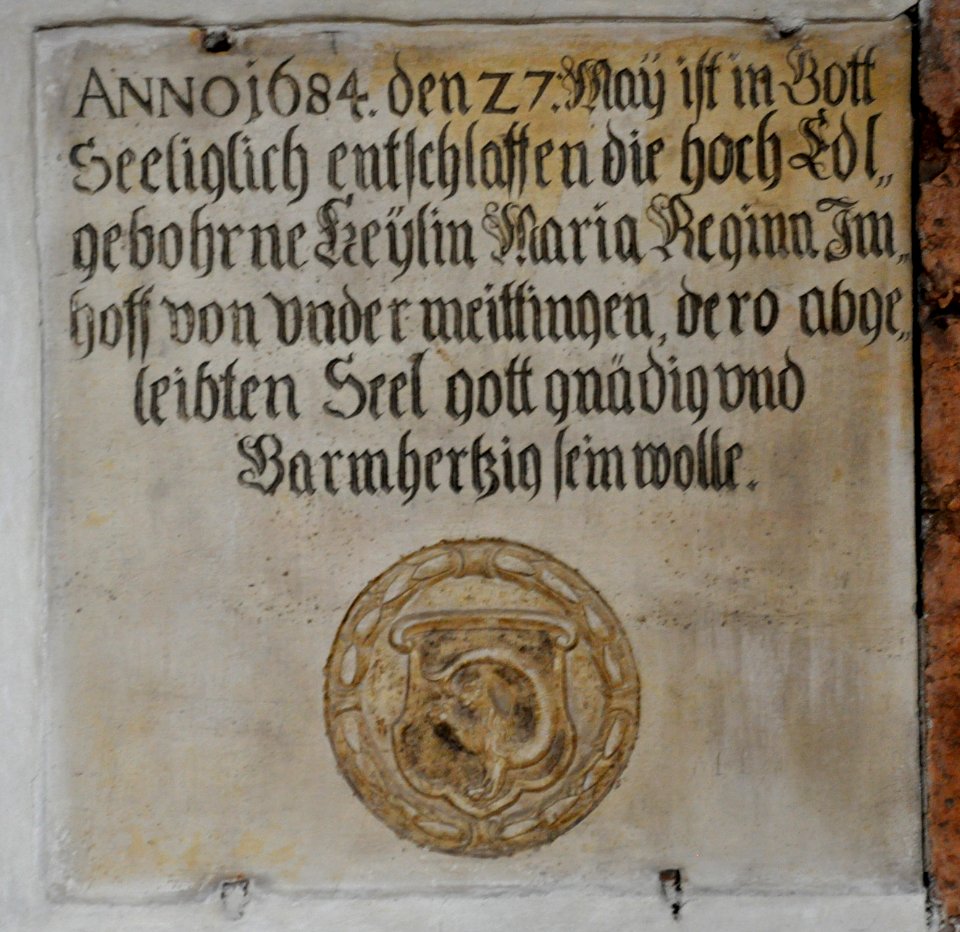 ANNO 1684. den 27. Maÿ ist in Gott
Seeliglich entschlaffen die hoch Edl„
gebohrne Freÿlin Maria Regina Im„
hoff von vnder meittingen, dero abge„
leibten Seel gott gnädig vnd
Barmhertzig sein wolle.